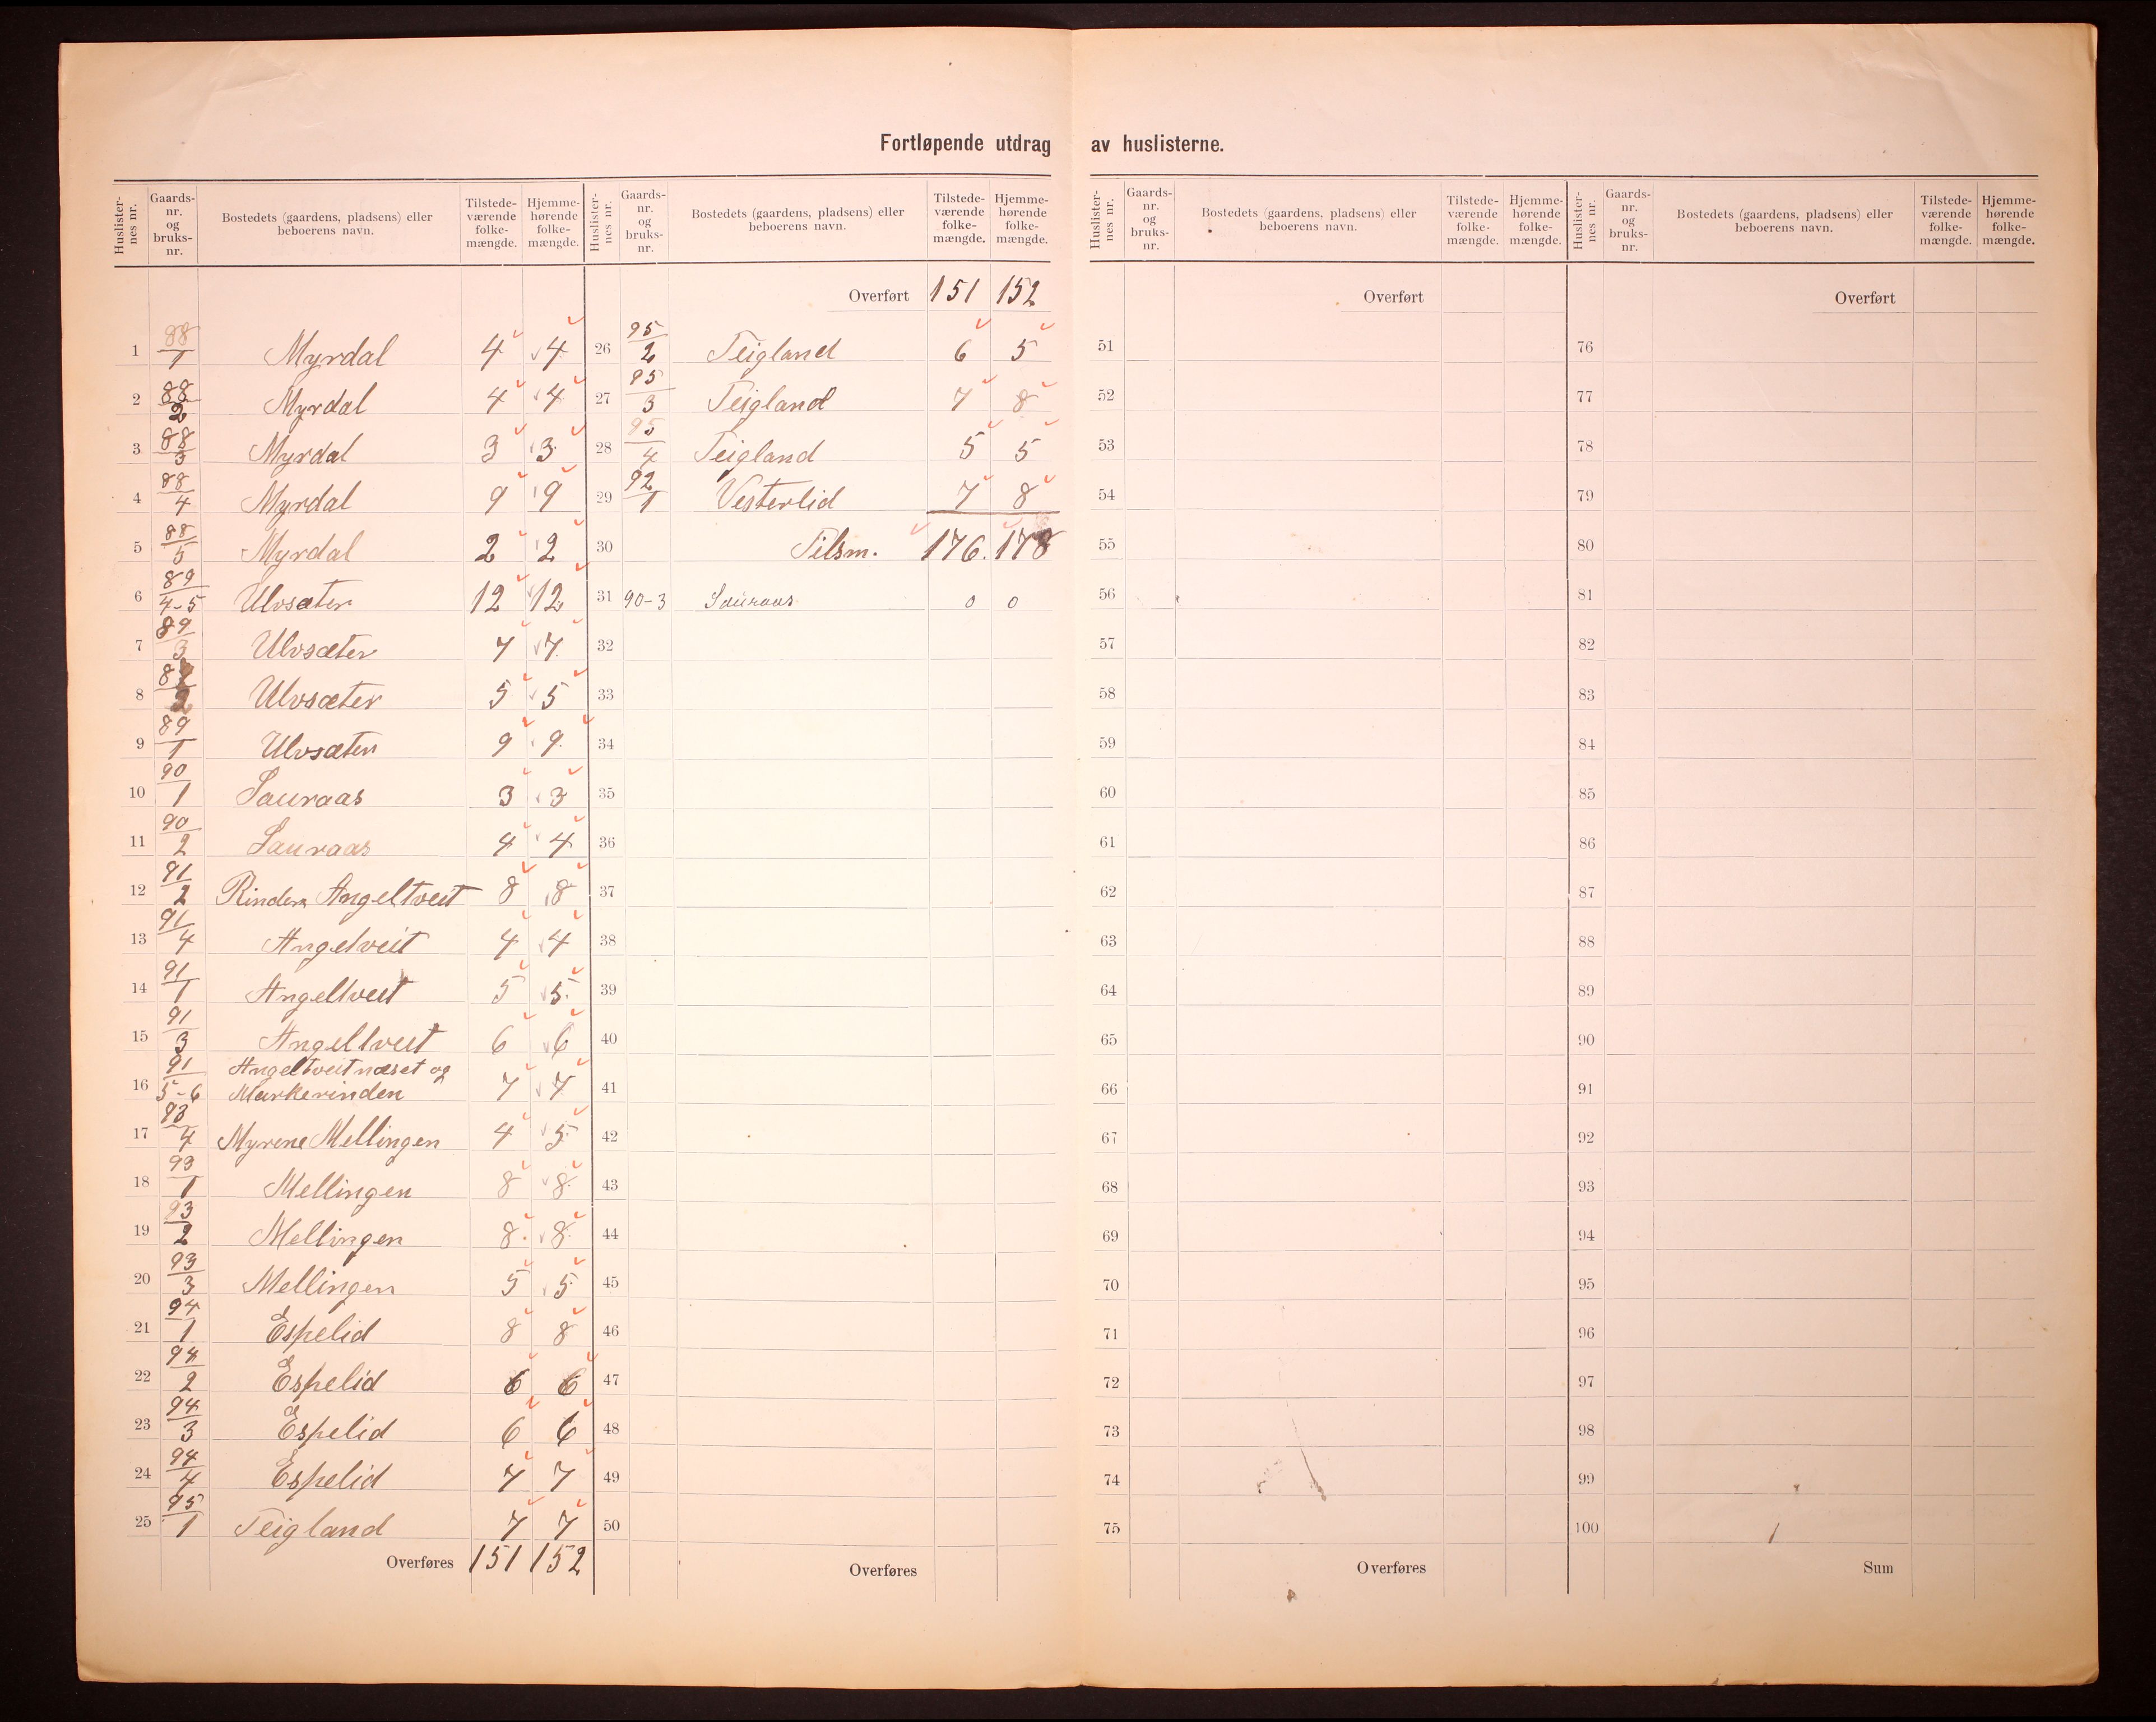 Fortløpende utdrag av huslisterne.
Huslisternes nr. Gaards-nr. og bruks-nr. Bostedets (gaardens, pladsens) eller beboerens navn. Tilstedeværende folkemængde. Hjemmehørende folkemængde.
1 88/1 Myrdal 4 4
2 88/2 Myrdal 4 4
3 88/3 Myrdal 3 3
4 88/4 Myrdal 9 9
5 88/5 Myrdal 2 2
6 89/4-5 Ulvsæter 12 12
7 89/3 Ulvsæter 7 7
8 89/2 Ulvsæter 5 5
9 89/1 Ulvsæter 9 9
10 90/1 Sauraas 3 3
11 90/2 Sauraas 4 4
12 91/2 Rinden Angeltveit 8 8
13 91/4 Angelveit 4 4
14 91/1 Angeltveit 5 5
15 91/3 Angeltveit 6 6
16 91/5-6 Angeltveitnæset og Markerinden 7 7
17 93/4 Myrene Mellingen 4 5
18 93/1 Mellingen 8 8
19 93/2 Mellingen 8 8
20 93/3 Mellingen 5 5
21 94/1 Espelid 8 8
22 94/2 Espelid 6 6
23 94/3 Espelid 6 6
24 94/4 Espelid 7 7
25 95/1 Teigland 7 7
Overføres 151 152
Huslisternes nr. Gaards-nr. og bruks-nr. Bostedets (gaardens, pladsens) eller beboerens navn. Tilstedeværende folkemængde. Hjemmehørende folkemængde.
Overført 151 152
26 95/2 Teigland 6 5
27 95/3 Teigland 7 8
28 95/4 Teigland 5 5
29 92/1 Vesterlid 7 8
30 Tilsm. 176. 178
31 90-3 Sauraas 0 0
32
33
34
35
36
37
38
39
40
41
42
43
44
45
46
47
48
49
50
Overføres
Huslisternes nr. Gaards-nr. og bruks-nr. Bostedets (gaardens, pladsens) eller beboerens navn. Tilstedeværende folkemængde. Hjemmehørende folkemængde.
Overført
51
52
53
54
55
56
57
58
59
60
61
62
63
64
65
66
67
68
69
70
71
72
73
74
75
Overføres
Huslisternes nr. Gaards-nr. og bruks-nr. Bostedets (gaardens, pladsens) eller beboerens navn. Tilstedeværende folkemængde. Hjemmehørende folkemængde.
Overført
76
77
78
79
80
81
82
83
84
85
86
87
88
89
90
91
92
93
94
95
96
97
98
99
100
Sum